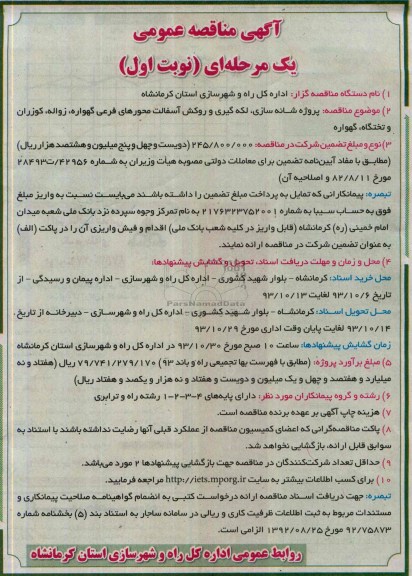 آگهی مناقصه عمومی
یک مرحله‌ای (نوبت اول)
۱) نام دستگاه مناقصه گزار: اداره کل راه و شهرسازی استان کرمانشاه
۲) موضوع مناقصه: پروژه شانه سازی، لکه گیری و روکش آسفالت محورهای فرعی گهواره، زواله، کوزران
و تختگاه، گهواره
۳) نوع و مبلغ تضمین شرکت در مناقصه: ۲۴۵/۸۰۰/۰۰۰ (دویست و چهل و پنج میلیون و هشتصد هزار ریال)
(مطابق با مفاد آیین‌نامه تضمین برای معاملات دولتی مصوبه هیأت وزیران به شماره ۴۲۹۵۶/ت۲۸۴۹۳
مورخ ۸۲/۸/۱۱ و اصلاحیه آن)
تبصره: پیمانکارانی که تمایل به پرداخت مبلغ تضمین را داشته باشند می‌بایست نسبت به واریز مبلغ
فوق به حساب سیبا به شماره ۲۱۷۶۴۲۳۷۵۲۰۰۱ به نام تمرکز وجوه سپرده نزد بانک ملی شعبه میدان
امام خمینی (ره) کرمانشاه (قابل واریز در کلیه شعب بانک ملی) اقدام و فیش واریزی آن را در پاکت (الف)
به عنوان تضمین شرکت در مناقصه ارائه نمایند.
۴) محل و زمان و مهلت دریافت اسناد، تحویل و گشایش پیشنهادها:
ParsNamadData
محل خرید اسناد: کرمانشاه - بلوار شهید کشوری - اداره کل راه و شهرسازی - اداره پیمان و رسیدگی - از
تاریخ ۹۳/۱۰/۶ لغایت ۹۳/۱۰/۱۳
محل تحویل اسناد: کرمانشاه - بلوار شهید کشوری - اداره کل راه و شهرسازی - دبیرخانه از تاریخ
۹۳/۱۰/۱۴ لغایت پایان وقت اداری مورخ ۹۳/۱۰/۲۹
زمان گشایش پیشنهادها: ساعت ۱۰ صبح مورخ ۹۳/۱۰/۳۰ در اداره کل راه و شهرسازی استان کرمانشاه
۵) مبلغ برآورد پروژه: (مطابق با فهرست بها تجمیعی راه و باند ۹۳) ۷۹/۷۴۱/۲۷۹/۱۷۰ ریال (هفتاد و نه
میلیارد و هفتصد و چهل و یک میلیون و دویست و هفتاد و نه هزار و یکصد و هفتاد ریال)
۶) رشته و گروه پیمانکاران مورد نظر: دارای پایه‌های ۴-۳-۲-۱ رشته راه و ترابری
۷) هزینه چاپ آگهی بر عهده برنده مناقصه است.
۸) پاکت مناقصه‌گرانی که اعضای کمیسیون مناقصه از عملکرد قبلی آنها رضایت نداشته باشند با استناد به
سوابق قابل ارائه، بازگشایی نخواهد شد.
۹) حداقل تعداد شرکت‌کنندگان در مناقصه جهت بازگشایی پیشنهادها ۲ مورد می‌باشد.
۱۰) برای کسب اطلاعات بیشتر به سایت http://iets.mporg.ir مراجعه فرمایید.
تبصره: جهت دریافت اسناد مناقصه ارائه درخواست کتبی به انضمام گواهینامه صلاحیت پیمانکاری و
مستندات مربوط به ثبت اطلاعات ظرفیت کاری و ریالی در سامانه ساجار به استناد بند (۵) بخشنامه شماره
۹۲/۷۵۸۷۳ مورخ ۱۳۹۲/۰۸/۲۵ الزامی است.
روابط عمومی اداره کل راه و شهرسازی استان کرمانشاه